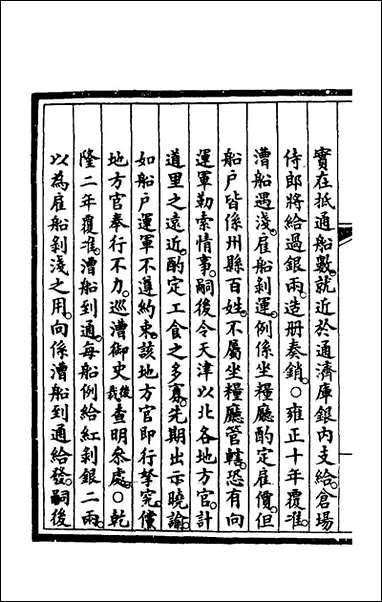 實在抵通船數。就近於通濟庫銀內支給。倉場
侍郎將給過銀兩。造册奏銷。○雍正十年覆准。
漕船遇淺。雇船剝運。例係坐糧廳酌定雇價。但
船户皆係州縣百姓。不屬坐糧廳管轄。恐有向
運軍勒索情事。嗣後令天津以北各地方官。計
道里之遠近。酌定工食之多寡。先期出示曉諭。
如船户運軍不遵約束。該地方官即行拏究。儻
地方官奉行不力。巡漕御史後裁查明參處。○乾
隆二年覆准。漕船到通。每船例給紅剝銀二兩。
以為雇船剝淺之用。向係漕船到通給發。嗣後